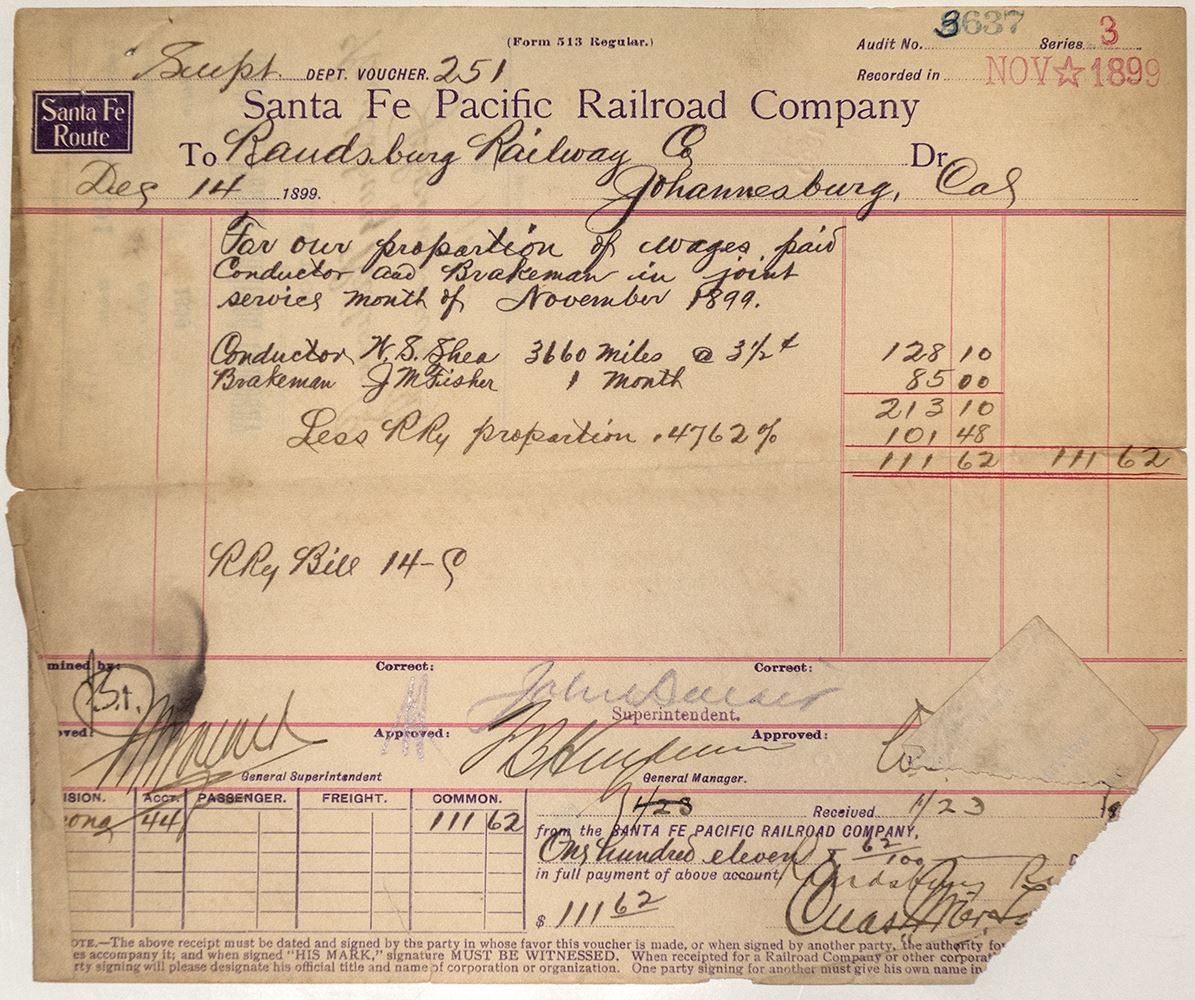 (Form 513 Regular.)
Audit No. 3637 Series 3
Supt. DEPT. VOUCHER. 251
Recorded in NOV ☆ 1899
Santa Fe Route
Santa Fe Pacific Railroad Company
To Randsburg Railway Co Dr.
Dec 14 1899. Johannesburg, Cal
For our proportion of wages paid
Conductor and Brakeman in joint
service month of November 1899.
Conductor W.S. Shea 3660 miles @ 3½ ¢ 128 10
Brakeman J M Fisher 1 month 85 00
213 10
Less RRy proportion .4762% 101 48
111 62 111 62
RRy Bill 14-C
mined by: Correct: Correct:
Superintendent.
oved: Approved: Approved:
General Superintendent General Manager.
ISION. ACCT. PASSENGER. FREIGHT. COMMON.
ona 44 111 62
1/23 Received 1/23 18
from the SANTA FE PACIFIC RAILROAD COMPANY,
One hundred eleven & 62/100 D
in full payment of above account,
Randsburg R
$ 111 62
Chas
OTE.—The above receipt must be dated and signed by the party in whose favor this voucher is made, or when signed by another party, the authority fo
es accompany it; and when signed "HIS MARK," signature MUST BE WITNESSED. When receipted for a Railroad Company or other corporat
rty signing will please designate his official title and name of corporation or organization. One party signing for another must give his own name in